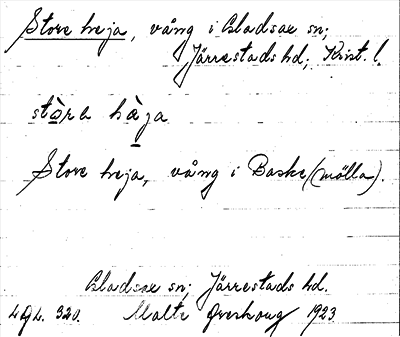 Store heja, vång i Gladsax sn;
Järrestads hd; Krist. l.
stòra hàja
Store heja, vång i Baske (mölla).
Gladsax sn; Järrestads hd.
320. Malte Areskoug 1923